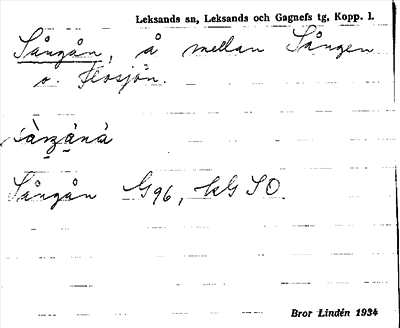 Leksands sn, Leksands och Gagnefs tg, Kopp. l.
Sångån, å mellan Sången
o. Flosjön.
Sångån G96, kG SO
Bror Lindén 1934